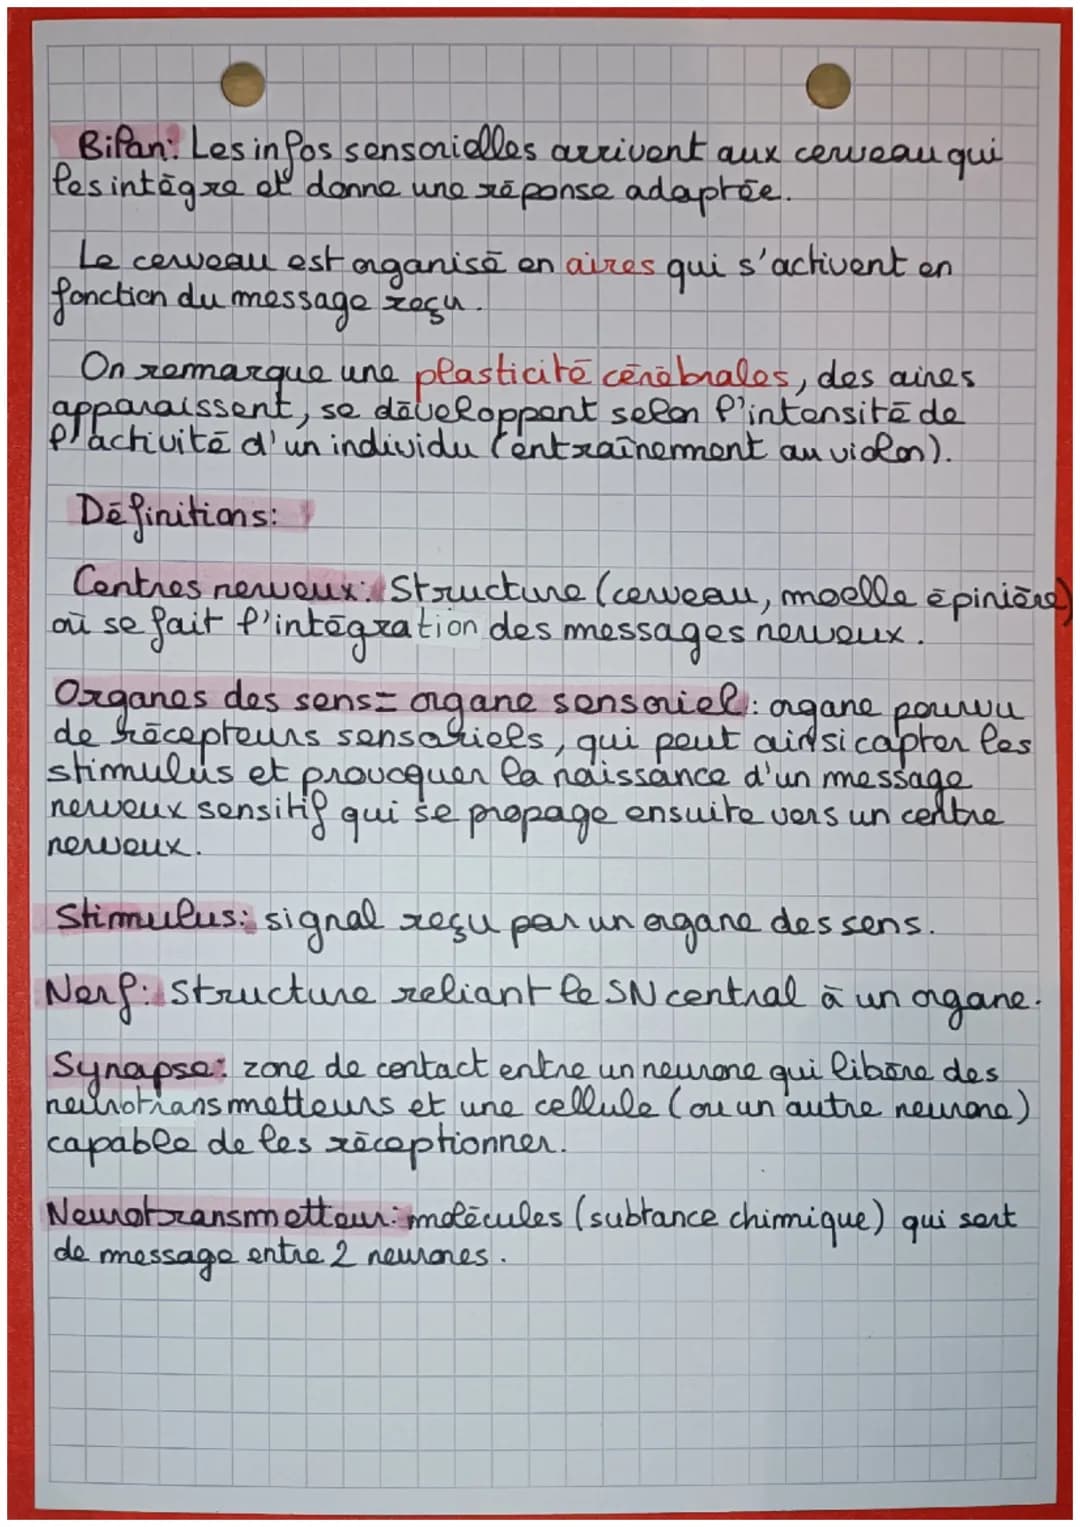 Bilan: Les infos sensorielles arrivent aux cerveau qui
les intègre et donne une réponse adaptée.
Le cerveau est organisé en aires qui s'activent en
fonction du message reçu.
On remarque une plasticité cérébrales, des aires
apparaissent, se développent selon l'intensité de
l'activité d'un individu (entraînement au violon).
Définitions:
Centres nerveux: Structure (cerveau, moelle épinière)
où se fait l'intégration des messages nerveux.
Organes des sens= organe sensoriel: organe pourvu
de récepteurs sensoriels, qui peut ainsi capter les
stimulus et provoquer la naissance d'un message
nerveux sensitif qui se propage ensuite vers un centre
nerveux.
Stimulus: signal reçu par un organe des sens.
Nerf: Structure reliant le SN central à un organe.
Synapse: zone de contact entre un neurone qui libère des
neurotransmetteurs et une cellule (ou un autre neurone)
capable de les réceptionner.
Neurotransmetteur: molécules (subtance chimique) qui sert
de message entre 2 neurones.